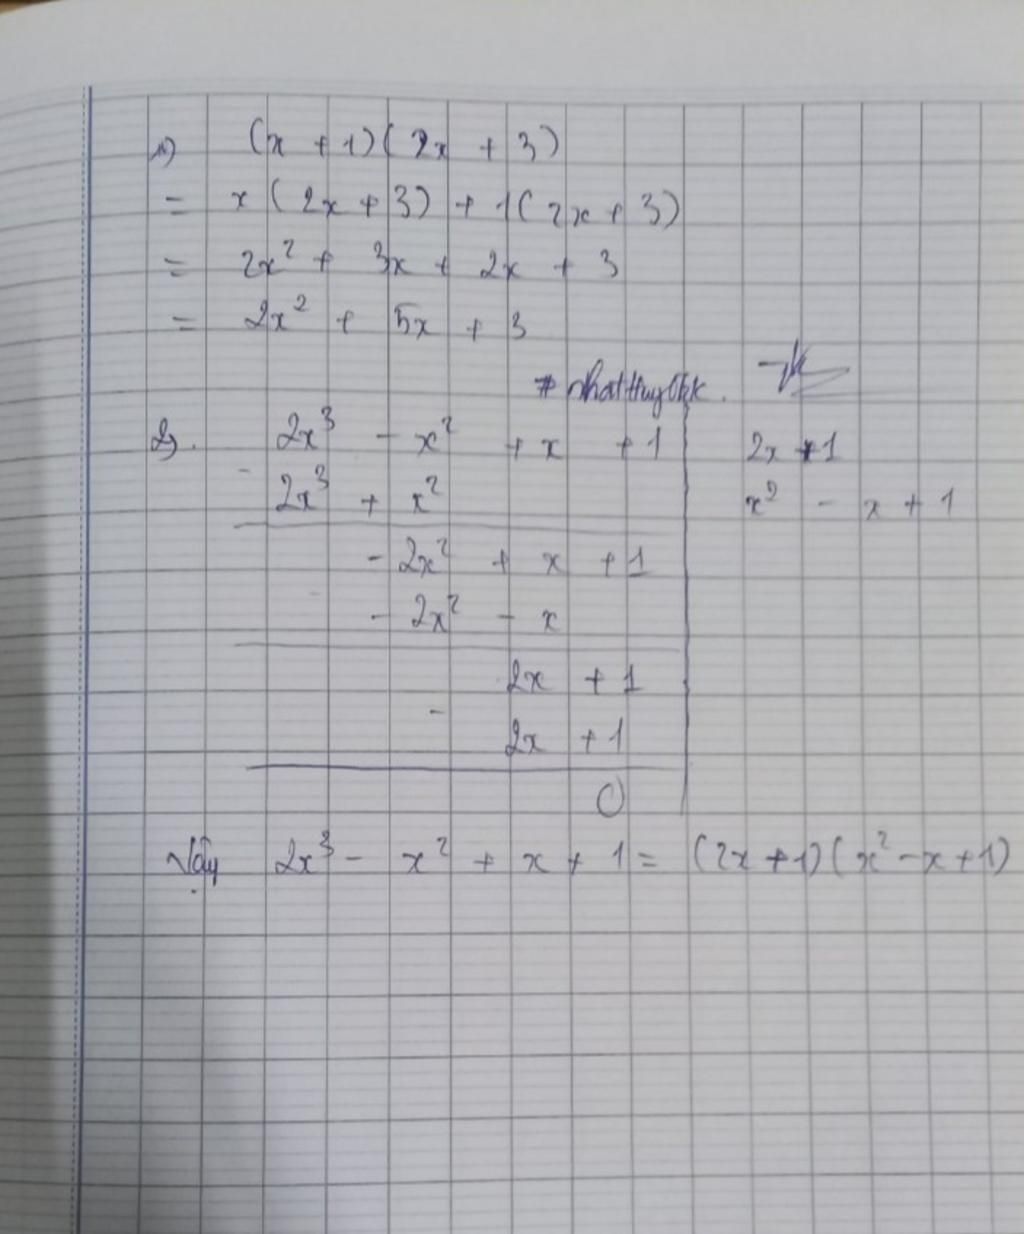 1) (x + 1)(2x + 3)
= x(2x + 3) + 1(2x + 3)
= 2x² + 3x + 2x + 3
= 2x² + 5x + 3
2). 2x³ - x² + x + 1 | 2x + 1
- 2x³ + x² | x² - x + 1
- 2x² + x + 1
- - 2x² - x
2x + 1
- 2x + 1
0
Vậy 2x³ - x² + x + 1 = (2x + 1)(x² - x + 1)